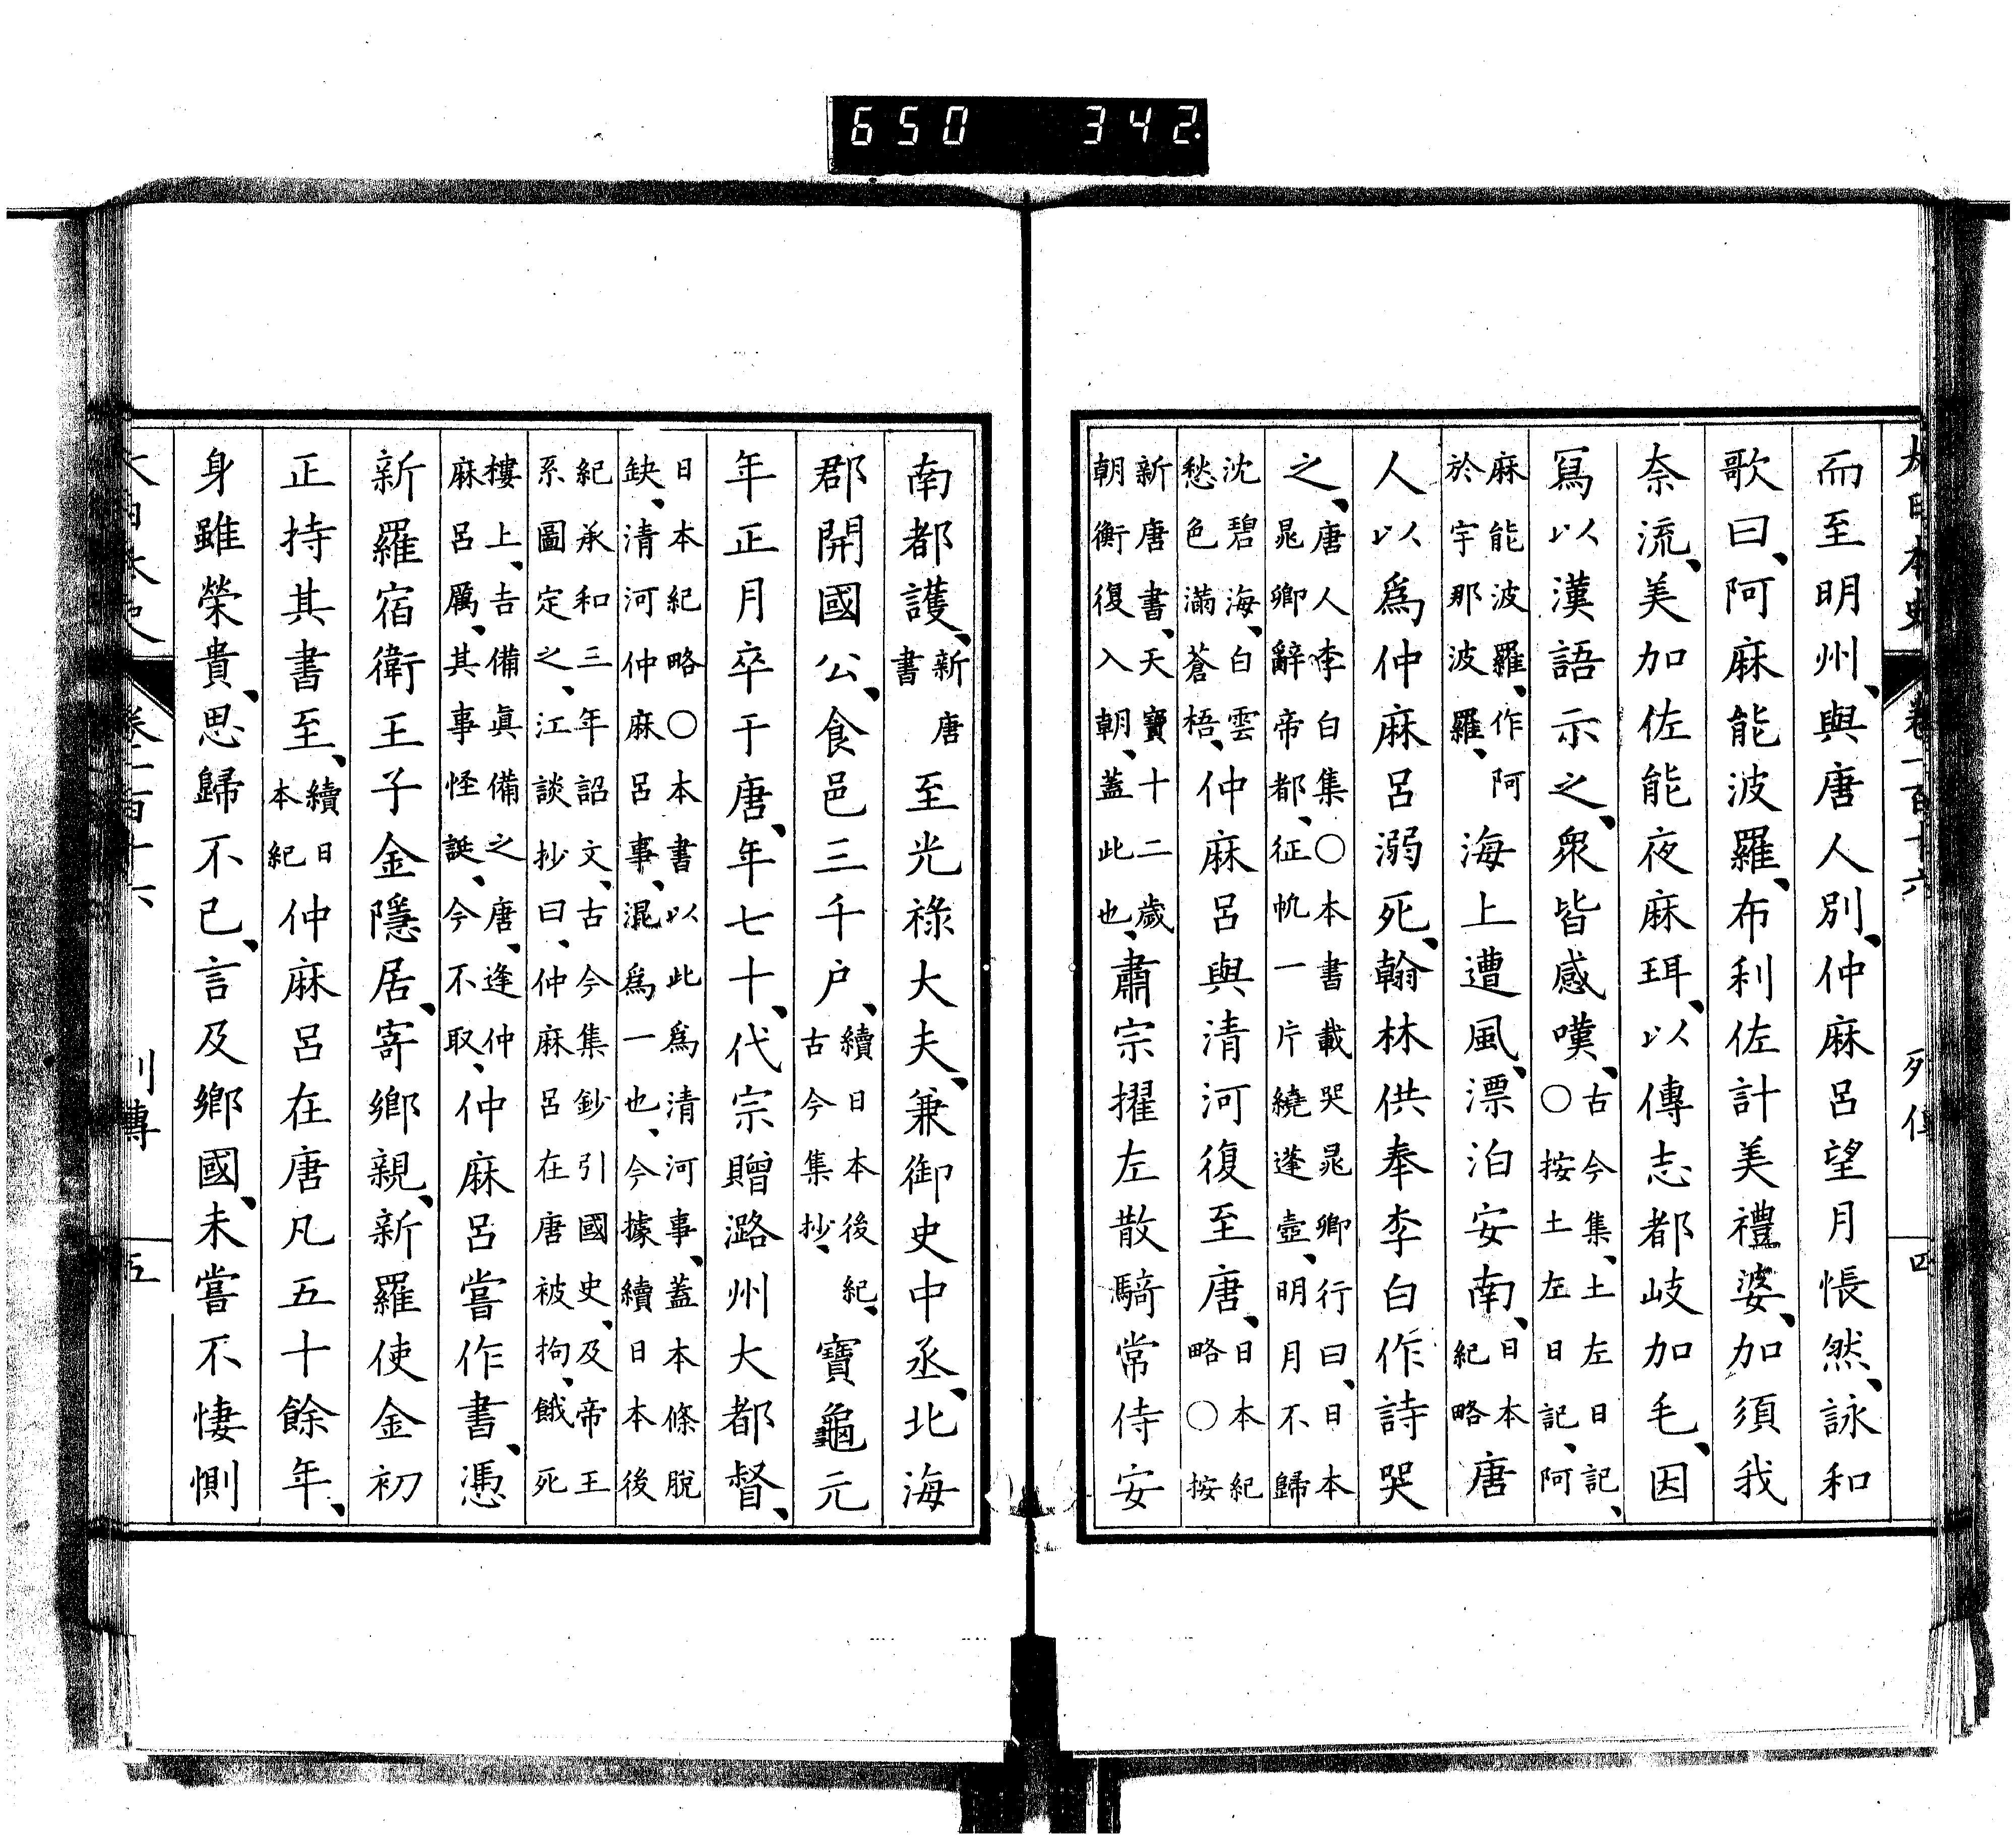 650 342.
大日本史 卷一百十六 列傳 四
而至明州、與唐人別、仲麻呂望月悵然、詠和
歌曰、阿麻能波羅、布利佐計美禮婆、加須我
奈流、美加佐能夜麻珥、以傳志都岐加毛、因
寫以漢語示之、衆皆感嘆、古今集、土左日記、○按土左日記、阿
麻能波羅、作阿於宇那波羅、海上遭風、漂泊安南、日本紀略唐
人以爲仲麻呂溺死、翰林供奉李白作詩哭
之、唐人李白集○本書載哭晁卿行曰、日本晁卿辭帝都、征帆一片繞蓬壺、明月不歸
沈碧海、白雲愁色滿蒼梧、仲麻呂與清河復至唐、日本紀略○按
新唐書、天寶十二歲朝衡復入朝、蓋此也、肅宗擢左散騎常侍安
南都護、新唐書至光祿大夫、兼御史中丞、北海
郡開國公、食邑三千户、續日本後紀、古今集抄、寶龜元
年正月卒于唐、年七十、代宗贈潞州大都督、
日本紀略○本書以此爲清河事、蓋本條脫缺、清河仲麻呂事、混爲一也、今據續日本後
紀承和三年詔文、古今集鈔引國史、及帝王系圖定之、江談抄曰、仲麻呂在唐被拘、餓死
樓上、吉備眞備之唐、逢仲麻呂厲、其事怪誕、今不取、仲麻呂嘗作書、憑
新羅宿衛王子金隱居、寄鄉親、新羅使金初
正持其書至、續日本紀仲麻呂在唐凡五十餘年、
身雖榮貴、思歸不已、言及鄉國、未嘗不悽惻
大日本史 卷一百十六 列傳 五